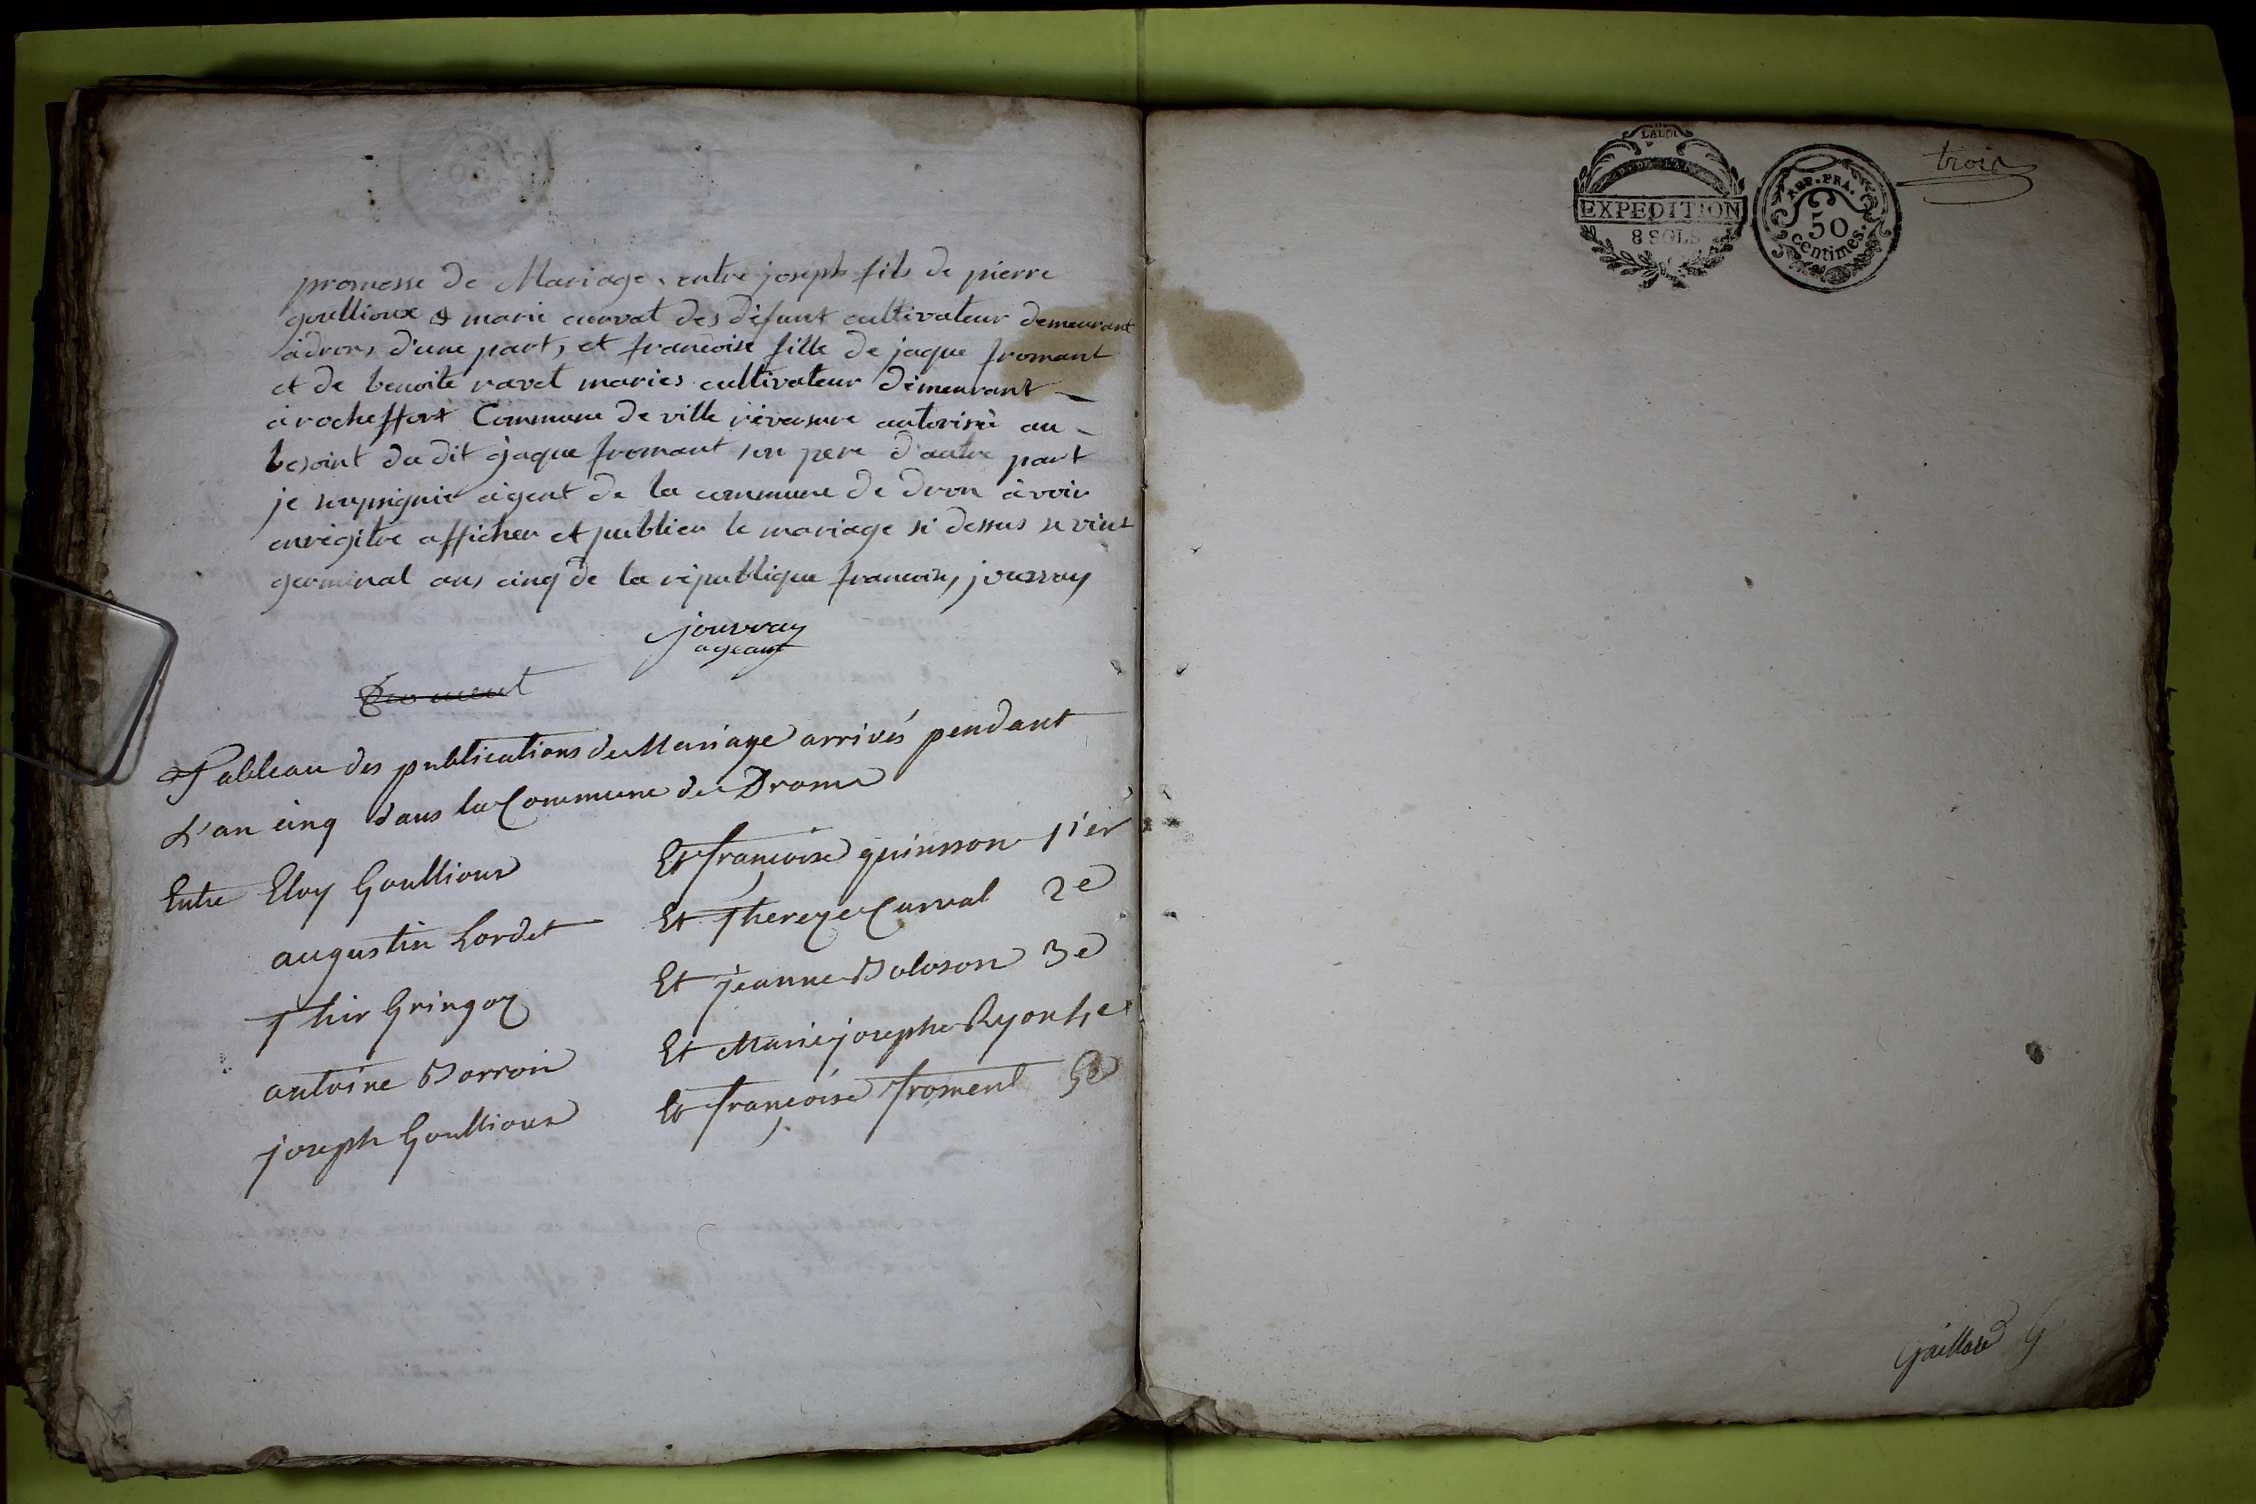 promesse de Mariage entre joseph fils de pierre
goullioux et marie curvat des défunt cultivateur demeurant
à drom d'une part, et francoise fille de jaque fromant
et de benoite ravet maries cultivateur demeurant
à rocheffort Commune de ville révasure autorisé au
besoint du dit jaque fromant son pere d'autre part
je sousignié agent de la commune de dron avoir
enrégitre afficher et publier le mariage si dessus le vint
germinal ans cinq de la république francoise, jouvray
jouvray
ageant
Tableau des publications de Mariage arrivés pendant
L'an cinq dans la Commune de Drom
Entre Eloy Goullioux Et françoise guinsson 1ier
augustin Cordet Et Thereze Curval 2e
Thir Gringoz Et jeanne Boloson 3e
antoine Borron Et Marie josephe Ryon 4e
joseph Goullioux Et françoise froment 5e
LA LOI
EXPEDITION
8 SOLS
REP. FRA.
50
centimes.
trois
Gaillard